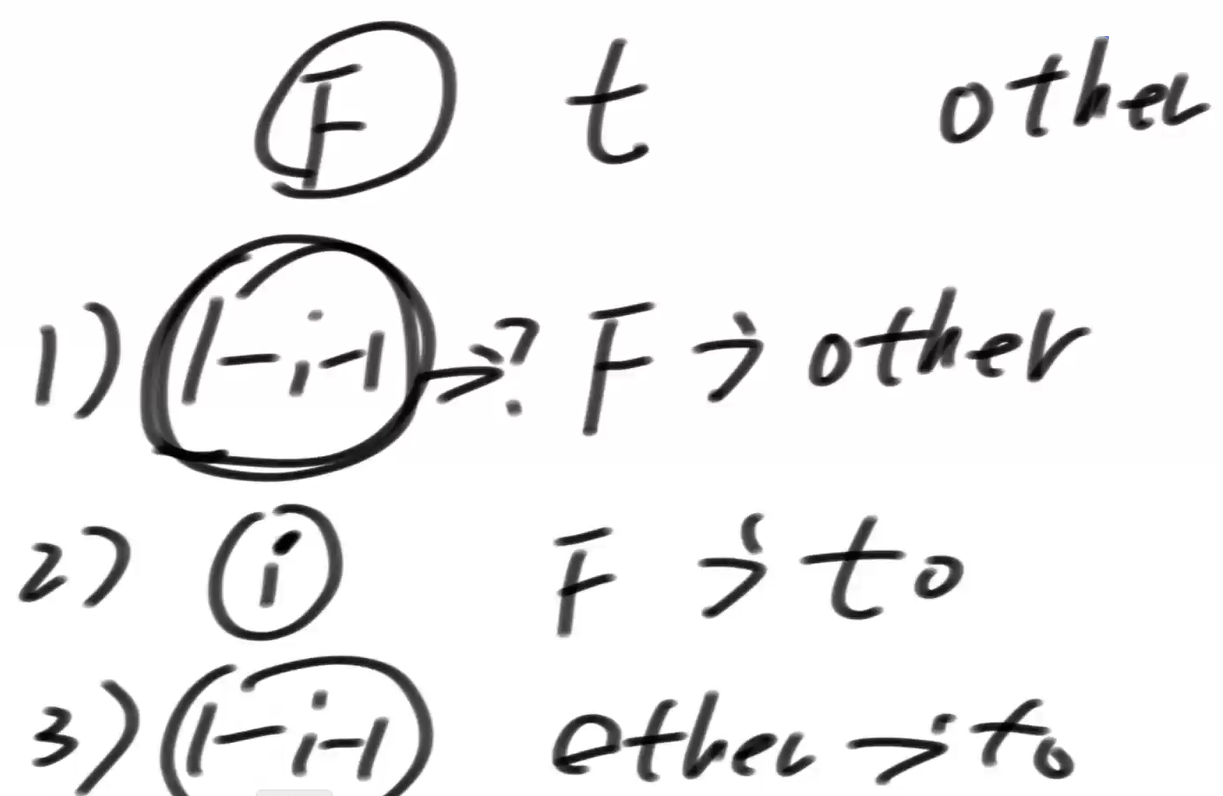 F t other
1) 1-i-1 →? F → other
2) i F → to
3) 1-i-1 other → to